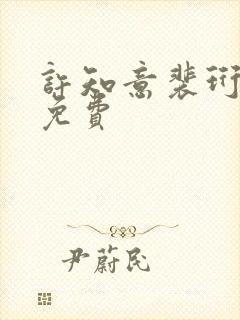 許知意裴珩
免費
尹蔚民